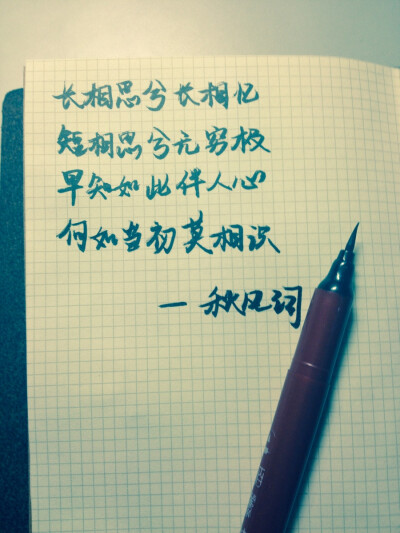 长相思兮长相忆
短相思兮无穷极
早知如此伴人心
何如当初莫相识
— 秋风词